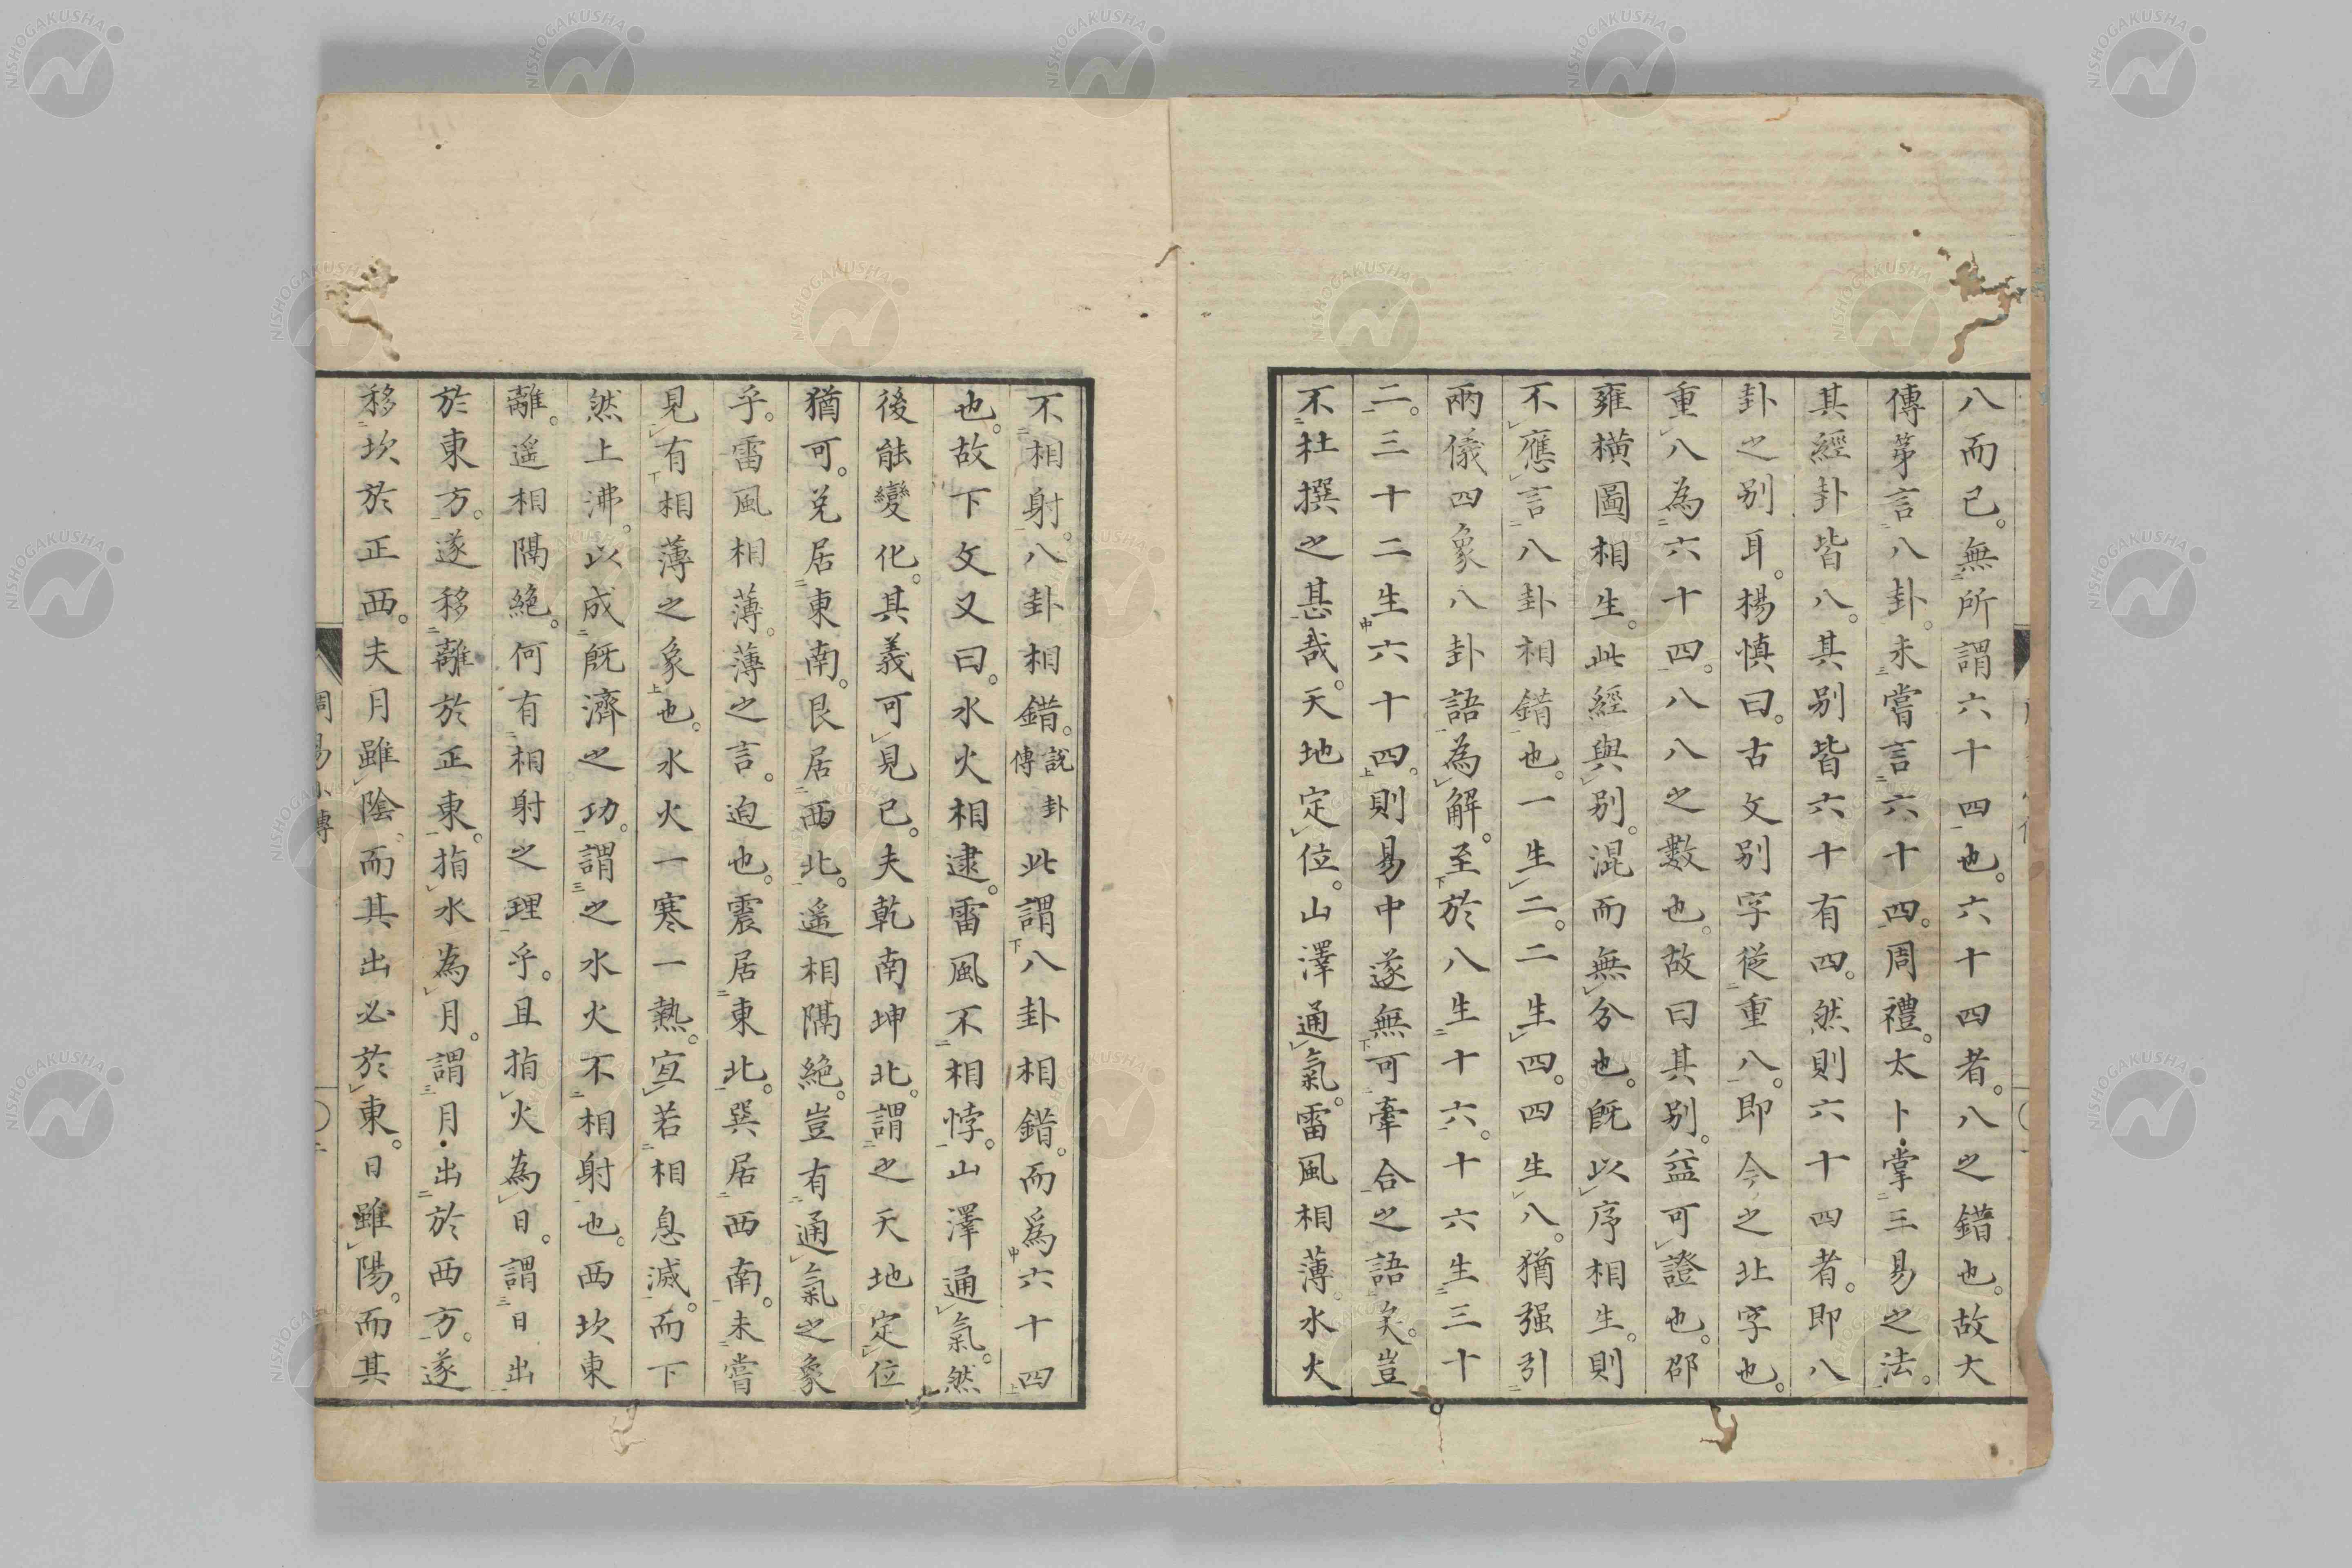 八而已。無所謂六十四也。六十四者。八之錯也。故大
傳苐言八卦。未嘗言六十四。周禮。太卜掌三易之法。
其經卦皆八。其别皆六十有四。然則六十四者。即八
卦之别耳。楊慎曰。古文别字從重八。即今之北字也。
重八為六十四。八八之數也。故曰其别。益可證也。邵
雍橫圖相生。此經與别。混而無分也。既以序相生。則
不應言八卦相錯也。一生二。二生四。四生八。猶强引
兩儀四象八卦語為解。至於八生十六。十六生三十
二。三十二生六十四。則易中遂無可牽合之語矣。豈
不杜撰之甚哉。天地定位。山澤通氣。雷風相薄。水火
不相射。八卦相錯。說卦傳此謂八卦相錯。而爲六十四
也。故下文又曰。水火相逮。雷風不相悖。山澤通氣。然
後能變化。其義可見已。夫乾南坤北。謂之天地定位
猶可。兌居東南。艮居西北。遙相隔絶。豈有通氣之象
乎。雷風相薄。薄之言。迫也。震居東北。巽居西南。未嘗
見有相薄之象也。水火一寒一熱。宜若相息滅。而下
然上沸。以成既濟之功。謂之水火不相射也。西坎東
離。遥相隔絶。何有相射之理乎。且指火為日。謂日出
於東方。遂移離於正東。指水為月。謂月出於西方。遂
移坎於正西。夫月雖陰而其出必於東。日雖陽。而其
周易小傳
NISHOGAKUSHA